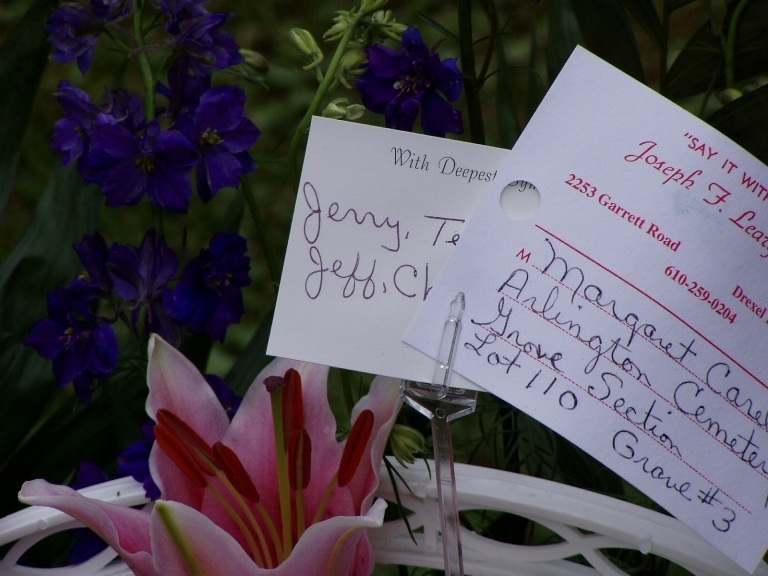 With Deepest
Jerry, Te
Jeff, Ch
"SAY IT WITH
Joseph F. Leary
2253 Garrett Road
Drexel
610-259-0204
M Margaret Care
Arlington Cemetery
Grove Section
Lot 110
Grave #3